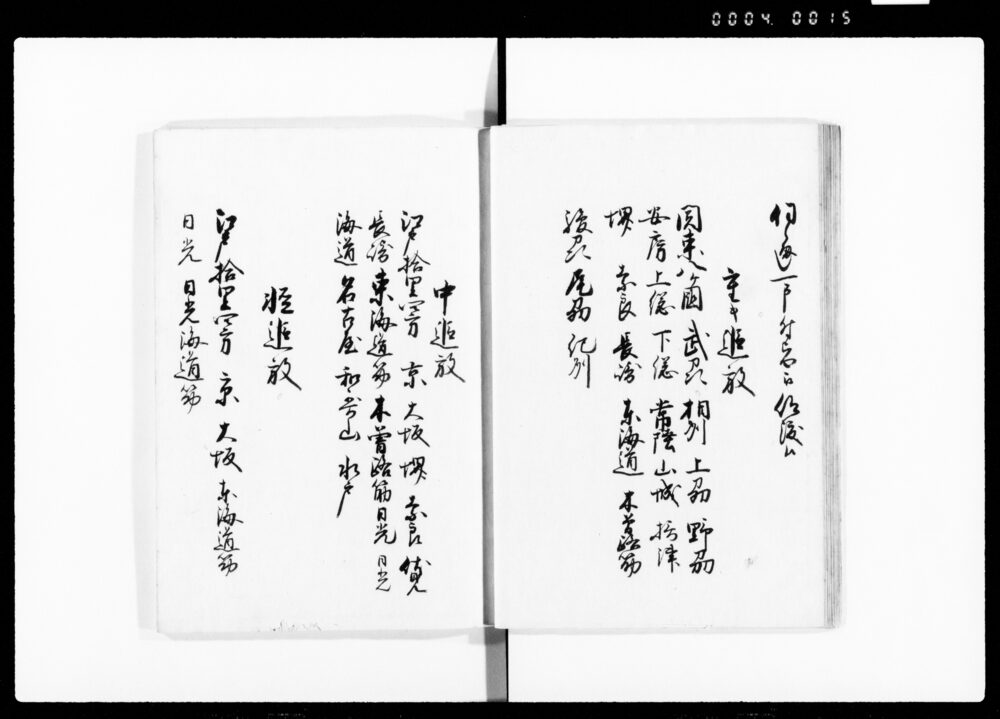 0004 0015
重キ追放
関東八ヶ国 武州 相州 上州 野州
安房 上総 下総 常陸 山城 摂津
堺 奈良 長崎 東海道 木曽路筋
駿州 尾州 紀州
中追放
江戸拾里四方 京 大坂 堺 奈良
長崎 東海道筋 木曽路筋 日光 日光
海道 名古屋 和歌山 水戸
軽追放
江戸拾里四方 京 大坂 東海道筋
日光 日光海道筋